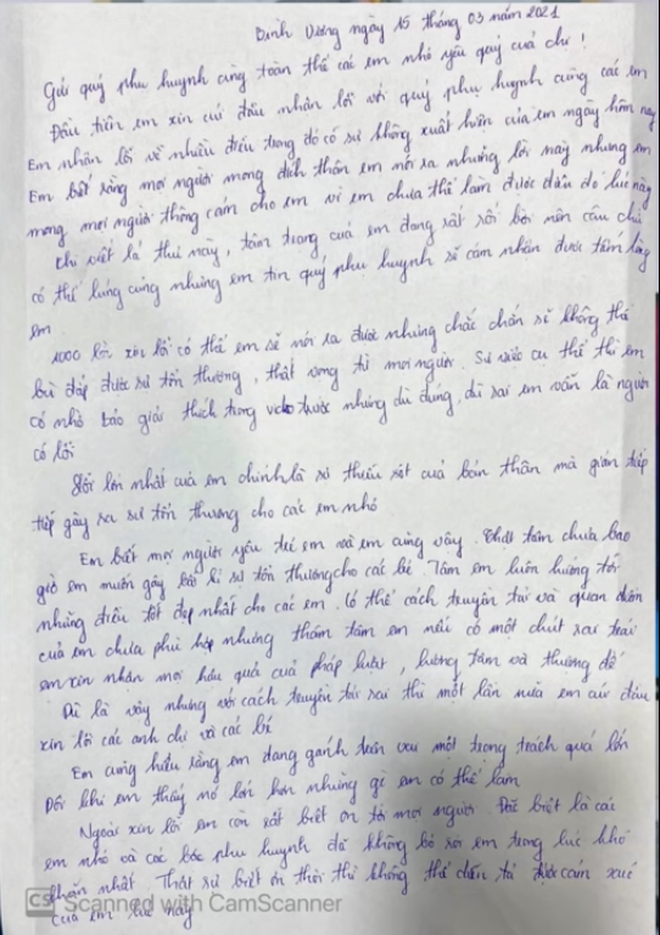 Bình Dương ngày 15 tháng 03 năm 2021
Gửi quý phụ huynh cùng toàn thể các em nhỏ yêu quý của chị!
Đầu tiên em xin cúi đầu nhận lỗi với quý phụ huynh cùng các em
Em nhận lỗi về nhiều điều trong đó có sự không xuất hiện của em ngày hôm nay
Em biết rằng mọi người mong đích thân em nói ra những lời này nhưng em
mong mọi người thông cảm cho em vì em chưa thể làm được điều đó lúc này
Khi viết lá thư này, tâm trạng của em đang rất rối bời nên câu chữ
có thể lủng củng nhưng em tin quý phụ huynh sẽ cảm nhận được tấm lòng
em
1000 lần xin lỗi có thể em sẽ nói ra được nhưng chắc chắn sẽ không thể
bù đắp được sự tổn thương, thất vọng từ mọi người. Sự việc cụ thể thì em
có nhờ báo giải thích trong video trước nhưng dù đúng, dù sai em vẫn là người
có lỗi
Lỗi lớn nhất của em chính là sự thiếu sót của bản thân mà gián tiếp
tiếp gây ra sự tổn thương cho các em nhỏ
Em biết mọi người yêu trẻ em và em cũng vậy. Thật tâm chưa bao
giờ em muốn gây bất kì sự tổn thương cho các bé. Tâm em luôn hướng tới
những điều tốt đẹp nhất cho các em. Có thể cách truyền tải và quan điểm
của em chưa phù hợp nhưng thâm tâm em nếu có một chút sai trái
em xin nhận mọi hậu quả của pháp luật, lương tâm và thượng đế
Dù là vậy nhưng với cách truyền tải sai thì một lần nữa em cúi đầu
xin lỗi các anh chị và các bé
Em cũng hiểu rằng em đang gánh trên vai một trọng trách quá lớn
Đôi khi em thấy nó lớn hơn những gì em có thể làm
Ngoài xin lỗi em còn rất biết ơn tới mọi người. Đặc biệt là các
em nhỏ và các bác phụ huynh đã không bỏ rơi em trong lúc khó
khăn nhất. Thật sự biết ơn thôi thì không thể diễn tả được cảm xúc
của em lúc này
CS Scanned with CamScanner